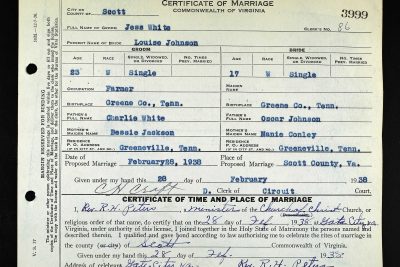 CERTIFICATE OF MARRIAGE
COUNTY OF Scott COMMONWEALTH OF VIRGINIA 3999
CITY OF CLERK'S NO. 86
FULL NAME OF GROOM Jess White
PRESENT NAME OF BRIDE Louise Johnson
GROOM BRIDE
AGE RACE SINGLE, WIDOWED, OR DIVORCED NO. TIMES PREV. MARRIED AGE RACE SINGLE, WIDOWED, OR DIVORCED NO. TIMES PREV. MARRIED
23 W Single 17 W Single
OCCUPATION Farmer OCCUPATION
BIRTHPLACE Greene Co., Tenn. BIRTHPLACE Greene Co., Tenn.
FATHER'S FULL NAME Charlie White FATHER'S FULL NAME Oscar Johnson
MOTHER'S MAIDEN NAME Bessie Jackson MOTHER'S MAIDEN NAME Nanie Conley
RESIDENCE P. O. ADDRESS Greeneville, Tenn. RESIDENCE P. O. ADDRESS Greeneville, Tenn.
Date of Proposed Marriage February 28, 1938 Place of Proposed Marriage Scott County, Va.
Given under my hand this 28 day of February 1938
D. Clerk of Circuit Court.
CERTIFICATE OF TIME AND PLACE OF MARRIAGE
I, Rev. R. H. Peters, a minister of the Church of Christ Church, or
religious order of that name, do certify that on the 28 day of Feb, 1938, at Gate City, Va.
Virginia, under authority of this license, I joined together in Holy State of Matrimony the persons named and
described therein. I qualified and gave bond according to law authorizing me to celebrate the rites of marriage in
the county (or city) of Scott, Commonwealth of Virginia.
Given under my hand this 28 day of Feb. 1938
Address of celebrant Gate City Va Rev. R. H. Peters